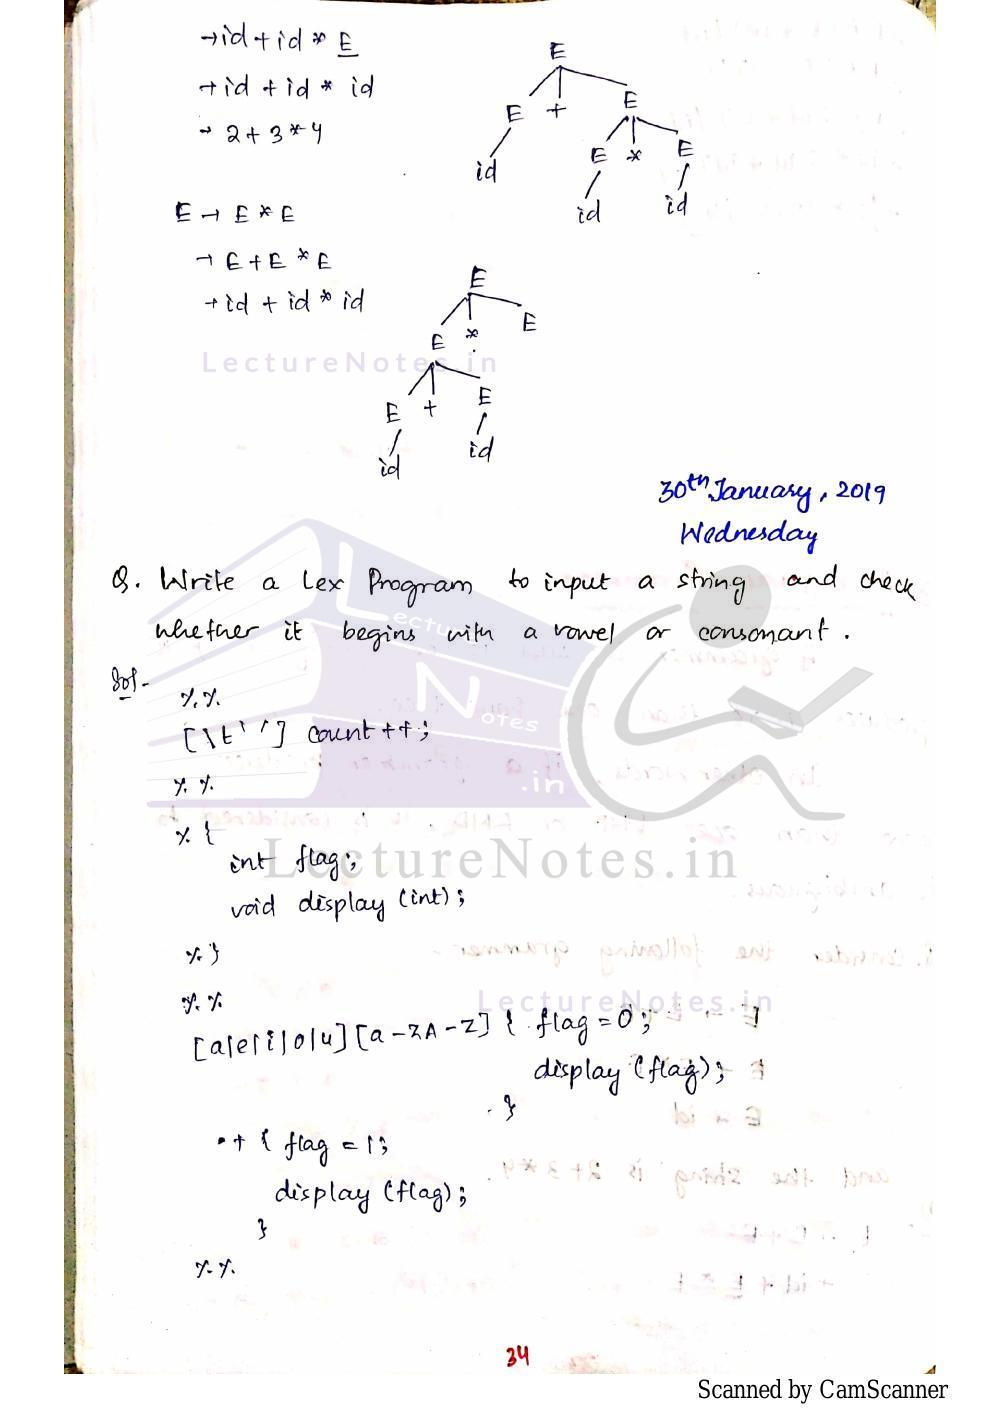 →id + id * E
→ id + id * id
→ 2 + 3 * 4
E
E + E
E * E
id
id id
E → E * E
→ E + E * E
→ id + id * id
E
E * E
E + E
id id
LectureNotes.in
30th January, 2019
Wednesday
Q. Write a Lex Program to input a string and check
whether it begins with a vowel or consonant.
Sol-
%%
[\t' '] count++;
%%
%{
int flag;
void display (int);
%}
%%
[a|e|i|o|u][a-zA-Z] { flag = 0;
display (flag);
}
.+ { flag = 1;
display (flag);
}
%%
Lecture
Notes
.in
LectureNotes.in
LectureNotes.in
34
Scanned by CamScanner